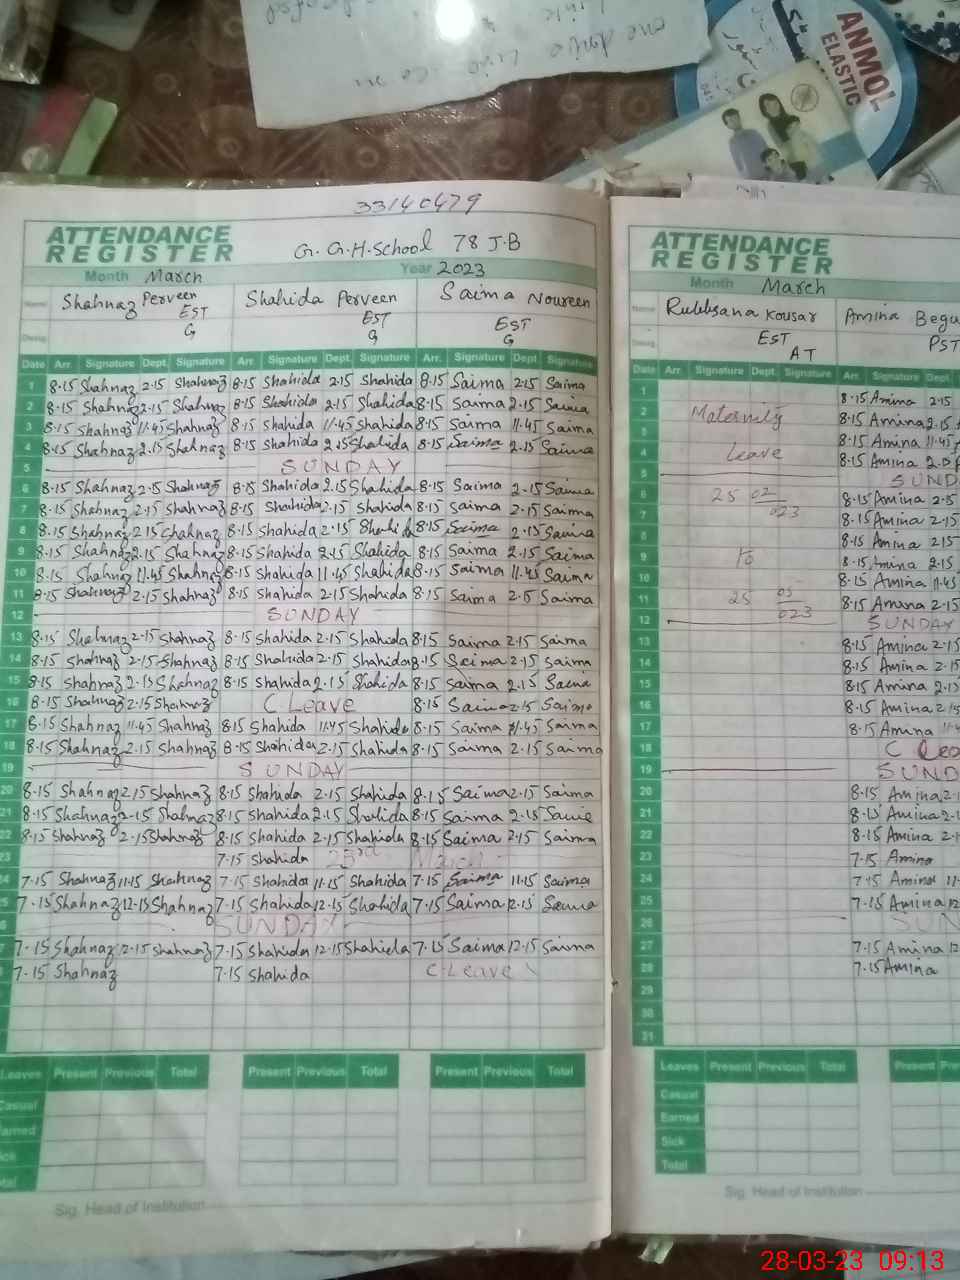 one
ANMOL
ELASTIC
33140479
ATTENDANCE
REGISTER
G. G.H.School 78 J.B
Month March Year 2023
Name Shahnaz Perveen Shahida Perveen Saima Noureen
EST EST EST
Desig. G G G
Date Arr. Signature Dept. Signature Arr. Signature Dept. Signature Arr. Signature Dept. Signature
1 8.15 Shahnaz 2.15 Shahnaz 8.15 Shahida 2.15 Shahida 8.15 Saima 2.15 Saima
2 8.15 Shahnaz 2.15 Shahnaz 8.15 Shahida 2.15 Shahida 8.15 Saima 2.15 Saima
3 8.15 Shahnaz 11.45 Shahnaz 8.15 Shahida 11.45 Shahida 8.15 Saima 11.45 Saima
4 8.15 Shahnaz 2.15 Shahnaz 8.15 Shahida 2.15 Shahida 8.15 Saima 2.15 Saima
5 SUNDAY
6 8.15 Shahnaz 2.15 Shahnaz 8.15 Shahida 2.15 Shahida 8.15 Saima 2.15 Saima
7 8.15 Shahnaz 2.15 Shahnaz 8.15 Shahida 2.15 Shahida 8.15 Saima 2.15 Saima
8 8.15 Shahnaz 2.15 Shahnaz 8.15 Shahida 2.15 Shahida 8.15 Saima 2.15 Saima
9 8.15 Shahnaz 2.15 Shahnaz 8.15 Shahida 2.15 Shahida 8.15 Saima 2.15 Saima
10 8.15 Shahnaz 11.45 Shahnaz 8.15 Shahida 11.45 Shahida 8.15 Saima 11.45 Saima
11 8.15 Shahnaz 2.15 Shahnaz 8.15 Shahida 2.15 Shahida 8.15 Saima 2.15 Saima
12 SUNDAY
13 8.15 Shahnaz 2.15 Shahnaz 8.15 Shahida 2.15 Shahida 8.15 Saima 2.15 Saima
14 8.15 Shahnaz 2.15 Shahnaz 8.15 Shahida 2.15 Shahida 8.15 Saima 2.15 Saima
15 8.15 Shahnaz 2.15 Shahnaz 8.15 Shahida 2.15 Shahida 8.15 Saima 2.15 Saima
16 8.15 Shahnaz 2.15 Shahnaz C Leave 8.15 Saima 2.15 Saima
17 8.15 Shahnaz 11.45 Shahnaz 8.15 Shahida 11.45 Shahida 8.15 Saima 11.45 Saima
18 8.15 Shahnaz 2.15 Shahnaz 8.15 Shahida 2.15 Shahida 8.15 Saima 2.15 Saima
19 SUNDAY
20 8.15 Shahnaz 2.15 Shahnaz 8.15 Shahida 2.15 Shahida 8.15 Saima 2.15 Saima
21 8.15 Shahnaz 2.15 Shahnaz 8.15 Shahida 2.15 Shahida 8.15 Saima 2.15 Saima
22 8.15 Shahnaz 2.15 Shahnaz 8.15 Shahida 2.15 Shahida 8.15 Saima 2.15 Saima
23 7.15 Shahida 23rd March
24 7.15 Shahnaz 11.15 Shahnaz 7.15 Shahida 11.15 Shahida 7.15 Saima 11.15 Saima
25 7.15 Shahnaz 12.15 Shahnaz 7.15 Shahida 12.15 Shahida 7.15 Saima 12.15 Saima
SUNDAY
7.15 Shahnaz 12.15 Shahnaz 7.15 Shahida 12.15 Shahida 7.15 Saima 12.15 Saima
7.15 Shahnaz 7.15 Shahida C-Leave
Leaves Present Previous Total Present Previous Total Present Previous Total
Casual
Earned
Sick
Total
Sig. Head of Institution
ATTENDANCE
REGISTER
Month March
Name Rukhsana Kousar Amina Begu
EST PST
Desig. AT
Date Arr. Signature Dept. Signature Arr. Signature Dept
1 8.15 Amina 2.15
2 Maternity 8.15 Amina 2.15
3 8.15 Amina 11.45
4 Leave 8.15 Amina 2.15
5 SUND
6 25 02 8.15 Amina 2.15
7 023 8.15 Amina 2.15
8 8.15 Amina 2.15
9 To 8.15 Amina 2.15
10 8.15 Amina 11.45
11 25 05 8.15 Amina 2.15
12 023 SUNDAY
13 8.15 Amina 2.15
14 8.15 Amina 2.15
15 8.15 Amina 2.15
16 8.15 Amina 2.15
17 8.15 Amina 11.4
18 C Lea
19 SUND
20 8.15 Amina 2.1
21 8.15 Amina 2.1
22 8.15 Amina 2.1
23 7.15 Amina
24 7.15 Amina 11.
25 7.15 Amina 12
26 SUN
27 7.15 Amina 12
28 7.15 Amina
29
30
31
Leaves Present Previous Total Present Pre
Casual
Earned
Sick
Total
Sig. Head of Institution
28-03-23 09:13